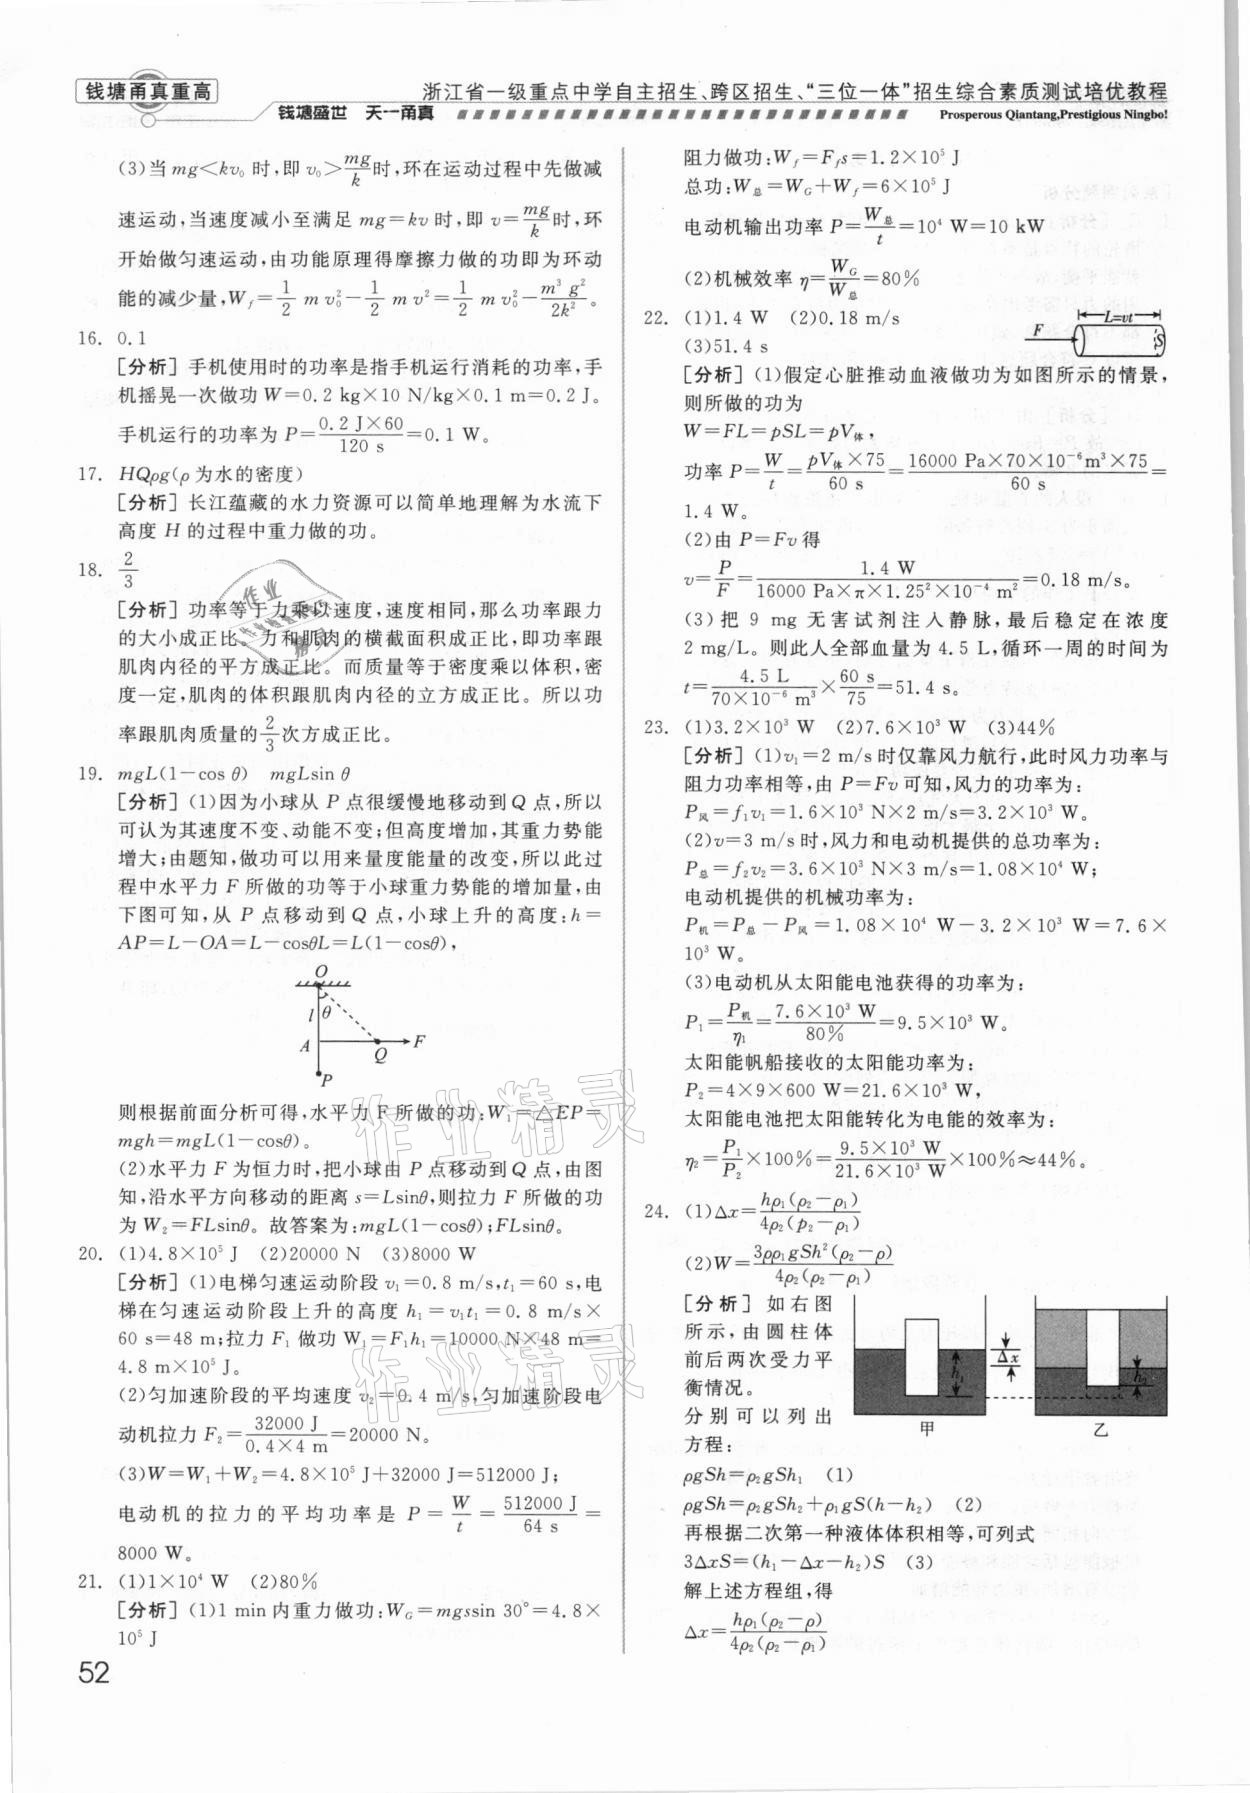 钱塘甬真重高
浙江省一级重点中学自主招生、跨区招生、“三位一体”招生综合素质测试培优教程
钱塘盛世 天一甬真
Prosperous Qiantang,Prestigious Ningbo!
(3)当 mg<kv₀ 时,即 v₀>mg/k时,环在运动过程中先做减
速运动,当速度减小至满足 mg=kv 时,即 v=mg/k时,环
开始做匀速运动,由功能原理得摩擦力做的功即为环动
能的减少量,W_f=1/2 m v₀²-1/2 m v²=1/2 m v₀²-m³g²/2k²。
16. 0.1
[分析] 手机使用时的功率是指手机运行消耗的功率,手
机摇晃一次做功 W=0.2 kg×10 N/kg×0.1 m=0.2 J。
手机运行的功率为 P=0.2 J×60/120 s=0.1 W。
17. HQρg(ρ 为水的密度)
[分析] 长江蕴藏的水力资源可以简单地理解为水流下
高度 H 的过程中重力做的功。
18. 2/3
[分析] 功率等于力乘以速度,速度相同,那么功率跟力
的大小成正比、力和肌肉的横截面积成正比,即功率跟
肌肉内径的平方成正比。而质量等于密度乘以体积,密
度一定,肌肉的体积跟肌肉内径的立方成正比。所以功
率跟肌肉质量的2/3次方成正比。
19. mgL(1-cos θ) mgLsin θ
[分析] (1)因为小球从 P 点很缓慢地移动到 Q 点,所以
可认为其速度不变、动能不变;但高度增加,其重力势能
增大;由题知,做功可以用来量度能量的改变,所以此过
程中水平力 F 所做的功等于小球重力势能的增加量,由
下图可知,从 P 点移动到 Q 点,小球上升的高度:h=
AP=L-OA=L-cosθL=L(1-cosθ),
O
l θ
A Q F
P
则根据前面分析可得,水平力 F 所做的功:W₁=△EP=
mgh=mgL(1-cosθ)。
(2)水平力 F 为恒力时,把小球由 P 点移动到 Q 点,由图
知,沿水平方向移动的距离 s=Lsinθ,则拉力 F 所做的功
为 W₂=FLsinθ。故答案为:mgL(1-cosθ);FLsinθ。
20. (1)4.8×10⁵ J (2)20000 N (3)8000 W
[分析] (1)电梯匀速运动阶段 v₁=0.8 m/s,t₁=60 s,电
梯在匀速运动阶段上升的高度 h₁=v₁t₁=0.8 m/s×
60 s=48 m;拉力 F₁ 做功 W₁=F₁h₁=10000 N×48 m=
4.8 m×10⁵ J。
(2)匀加速阶段的平均速度 v₂=0.4 m/s,匀加速阶段电
动机拉力 F₂=32000 J/0.4×4 m=20000 N。
(3)W=W₁+W₂=4.8×10⁵ J+32000 J=512000 J;
电动机的拉力的平均功率是 P=W/t=512000 J/64 s=
8000 W。
21. (1)1×10⁴ W (2)80%
[分析] (1)1 min 内重力做功:W_G=mgssin 30°=4.8×
10⁵ J
52
阻力做功:W_f=F_f s=1.2×10⁵ J
总功:W总=W_G+W_f=6×10⁵ J
电动机输出功率 P=W总/t=10⁴ W=10 kW
(2)机械效率 η=W_G/W总=80%
22. (1)1.4 W (2)0.18 m/s
(3)51.4 s
F L=vt S
[分析] (1)假定心脏推动血液做功为如图所示的情景,
则所做的功为
W=FL=pSL=pV体,
功率 P=W/t=pV体×75/60 s=16000 Pa×70×10⁻⁶m³×75/60 s=
1.4 W。
(2)由 P=Fv 得
v=P/F=1.4 W/16000 Pa×π×1.25²×10⁻⁴ m²=0.18 m/s。
(3)把 9 mg 无害试剂注入静脉,最后稳定在浓度
2 mg/L。则此人全部血量为 4.5 L,循环一周的时间为
t=4.5 L/70×10⁻⁶ m³×60 s/75=51.4 s。
23. (1)3.2×10³ W (2)7.6×10³ W (3)44%
[分析] (1)v₁=2 m/s时仅靠风力航行,此时风力功率与
阻力功率相等,由 P=Fv 可知,风力的功率为:
P风=f₁v₁=1.6×10³ N×2 m/s=3.2×10³ W。
(2)v=3 m/s 时,风力和电动机提供的总功率为:
P总=f₂v₂=3.6×10³ N×3 m/s=1.08×10⁴ W;
电动机提供的机械功率为:
P机=P总-P风=1.08×10⁴ W-3.2×10³ W=7.6×
10³ W。
(3)电动机从太阳能电池获得的功率为:
P₁=P机/η₁=7.6×10³ W/80%=9.5×10³ W。
太阳能帆船接收的太阳能功率为:
P₂=4×9×600 W=21.6×10³ W,
太阳能电池把太阳能转化为电能的效率为:
η₂=P₁/P₂×100%=9.5×10³ W/21.6×10³ W×100%≈44%。
24. (1)Δx=hρ₁(ρ₂-ρ₁)/4ρ₂(ρ₂-ρ₁)
(2)W=3ρρ₁gSh²(ρ₂-ρ)/4ρ₂(ρ₂-ρ₁)
[分析] 如右图
所示,由圆柱体
前后两次受力平
衡情况。
分别可以列出
方程:
h₁ Δx h₂
甲 乙
ρgSh=ρ₂gSh₁ (1)
ρgSh=ρ₂gSh₂+ρ₁gS(h-h₂) (2)
再根据二次第一种液体体积相等,可列式
3ΔxS=(h₁-Δx-h₂)S (3)
解上述方程组,得
Δx=hρ₁(ρ₂-ρ)/4ρ₂(ρ₂-ρ₁)
作业精灵
作业精灵